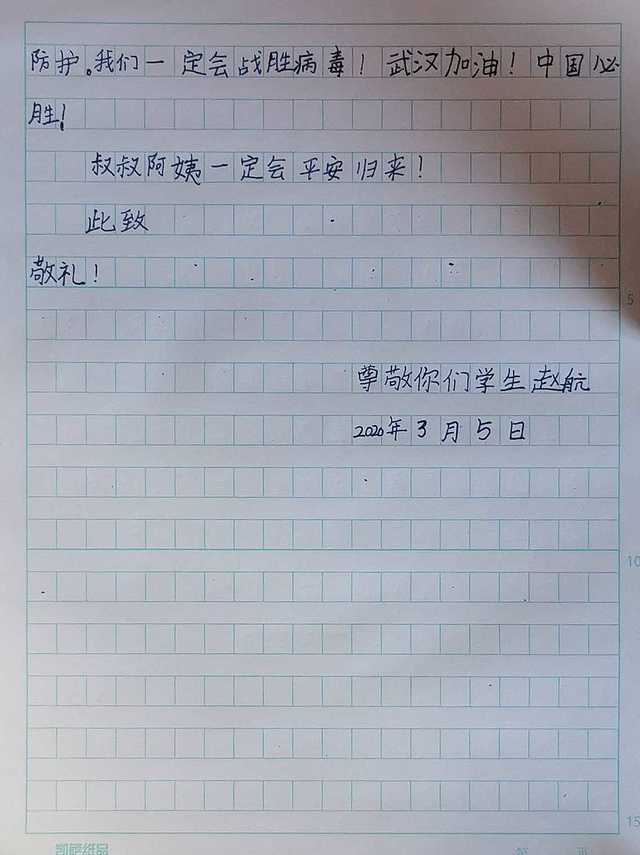 防护。我们一定会战胜病毒！武汉加油！中国必
胜！
叔叔阿姨一定会平安归来！
此致
敬礼！
5
尊敬你们学生赵航
2020年3月5日
10
15
凯萨纸品
第 页